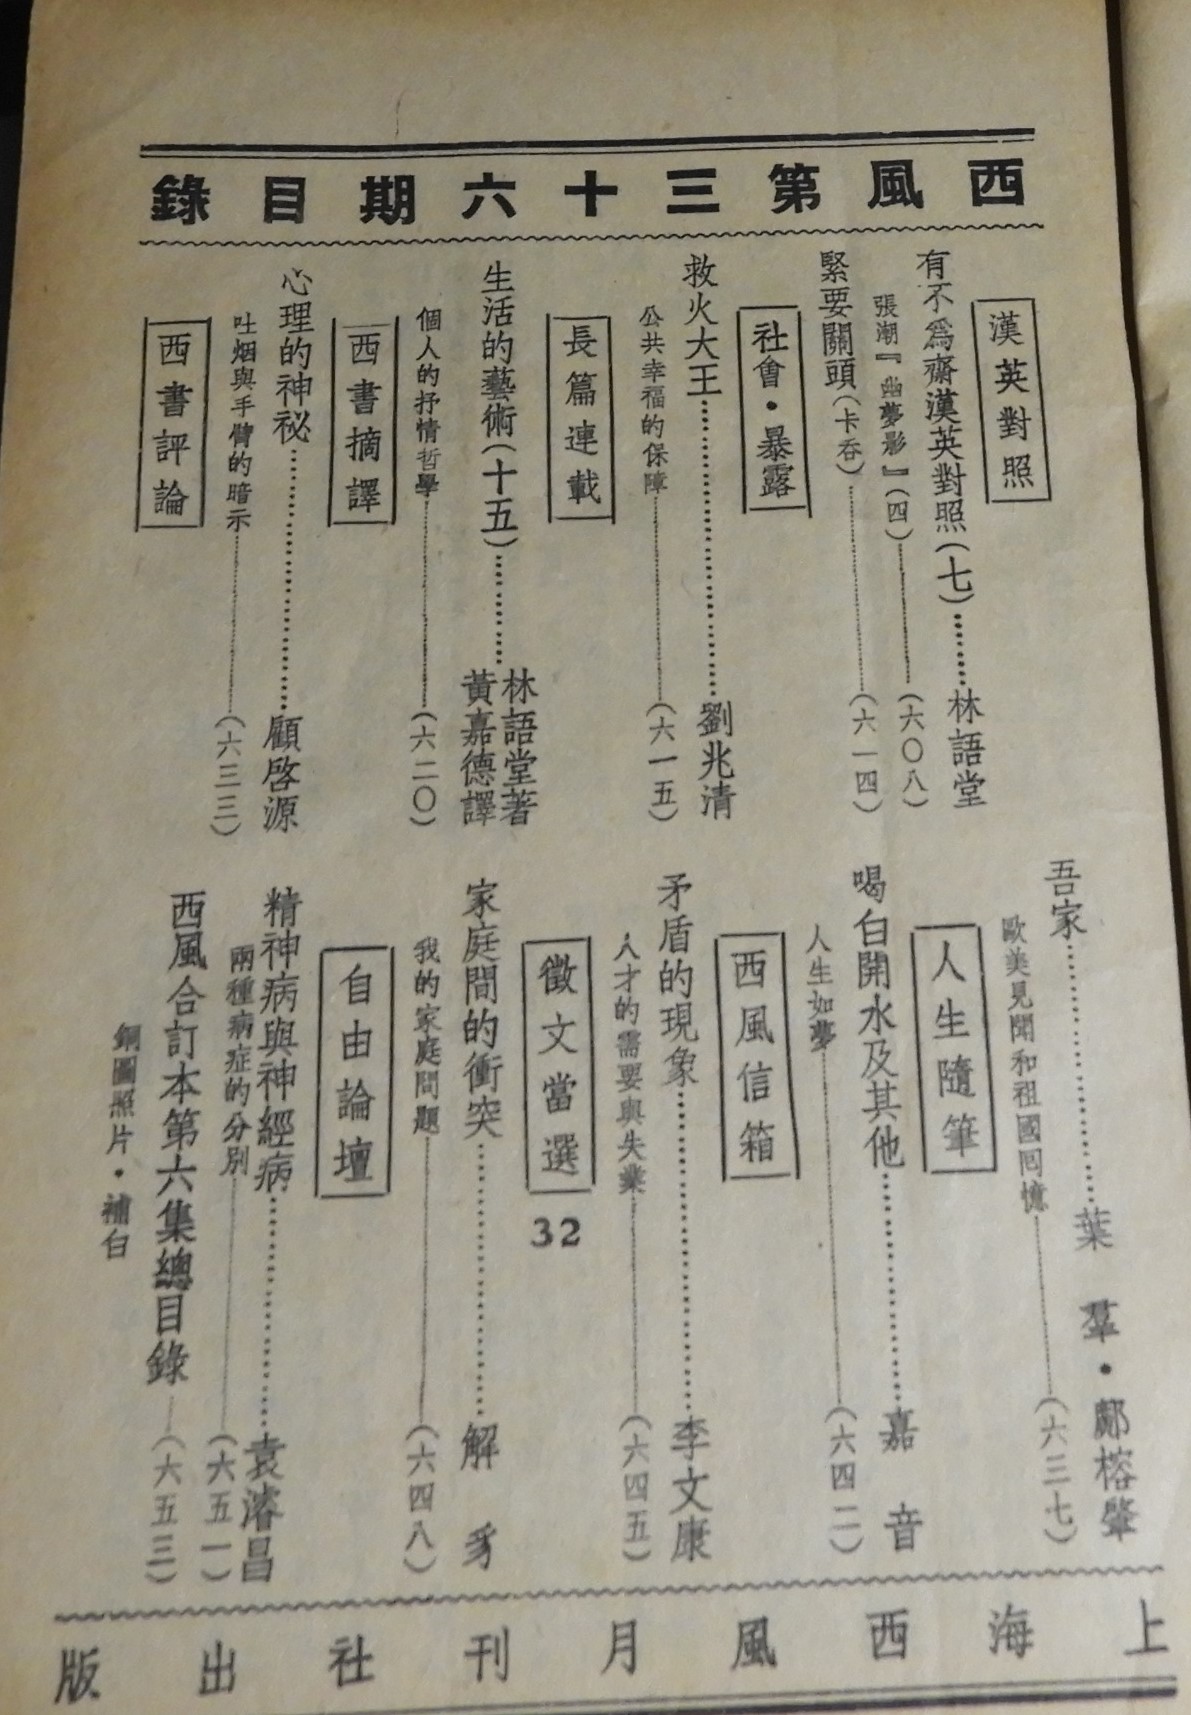 西風第三十六期目錄
漢英對照
有不爲齋漢英對照(七)……林語堂
張潮『幽夢影』(四)……(六〇八)
緊要關頭(卡吞)……(六一四)
社會・暴露
救火大王……劉兆清
公共幸福的保障……(六一五)
長篇連載
生活的藝術(十五)……林語堂著
黃嘉德譯
個人的抒情哲學……(六二〇)
西書摘譯
心理的神祕……顧啓源
吐烟與手臂的暗示……(六三三)
西書評論
吾家……葉羣・鄺榕肇
歐美見聞和祖國囘憶……(六三七)
人生隨筆
喝白開水及其他……嘉音
人生如夢……(六四二)
西風信箱
矛盾的現象……李文康
人才的需要與失業……(六四五)
徵文當選
32
家庭間的衝突……解豸
我的家庭問題……(六四八)
自由論壇
精神病與神經病……袁濬昌
兩種病症的分別……(六五一)
西風合訂本第六集總目錄……(六五三)
銅圖照片・補白
上海西風月刊社出版